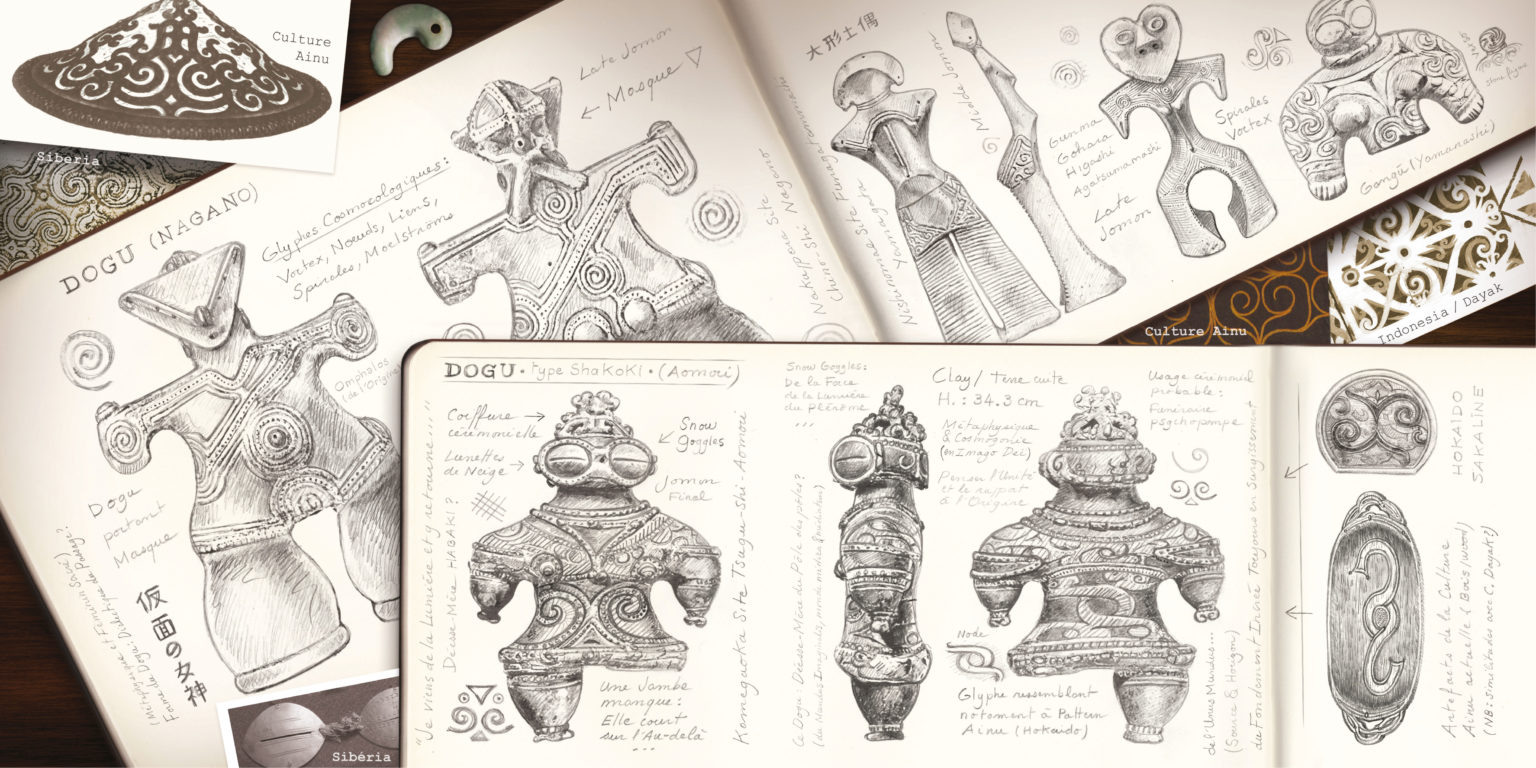 Culture
Ainu
Sibéria
DOGU (NAGANO)
Glyphes Cosmocologiques :
Vortex, Nœuds, Liens,
Spirales, Maelströms
Late Jomon
← Masque ▽
Omphalos
(de l'Origine)
Dogu
portant
Masque
仮面の女神
Nakappara Site
Chino-Shi Nagano
大形土偶
Middle Jomon
Nishinomae Site Funagatamachi
Yamagata
Gunma
Gohara
Higashi
Agatsumamachi
Late
Jomon
Spirales
Vortex
Gangû (Yamanashi)
Culture Ainu
Indonesia / Dayak
Sibéria
DOGU • type ShaKoKI • (Aomori)
Coiffure →
cérémonielle
Lunettes
de Neige →
Snow
Goggles
Jomon
Final
"Je viens de la Lumière et y retourne..."
Déesse Mère HABAKI ?
Kamegaoka Site Tsugaru-Shi-Aomori
Une Jambe
manque :
Elle court
sur l'Au-delà
...
Snow Goggles :
De la Face
de la Lumière
du Plérôme
...
Le Dogu : Déesse-Mère du Pôle des pôles ?
Clay / Terre cuite
H. : 34.3 cm
Métaphysique
& Cosmogonie
(en Imago Dei)
Penser l'Unité
et le rapport
à l'Origine
Usage cérémoniel
probable :
Funéraire
psychopompe
Node
Glyphe ressemblant
notament à Pattern
Ainu (Hokaido)
de l'Unus Mundus...
(Source & Horizon)
du Fondement Incréé Toujours en Surgissement
HOKAÏDO
SAKALINE
Artefacts de la Culture
Ainu actuelle (Bois, wood)
(NB : similitudes avec C. Dayak)